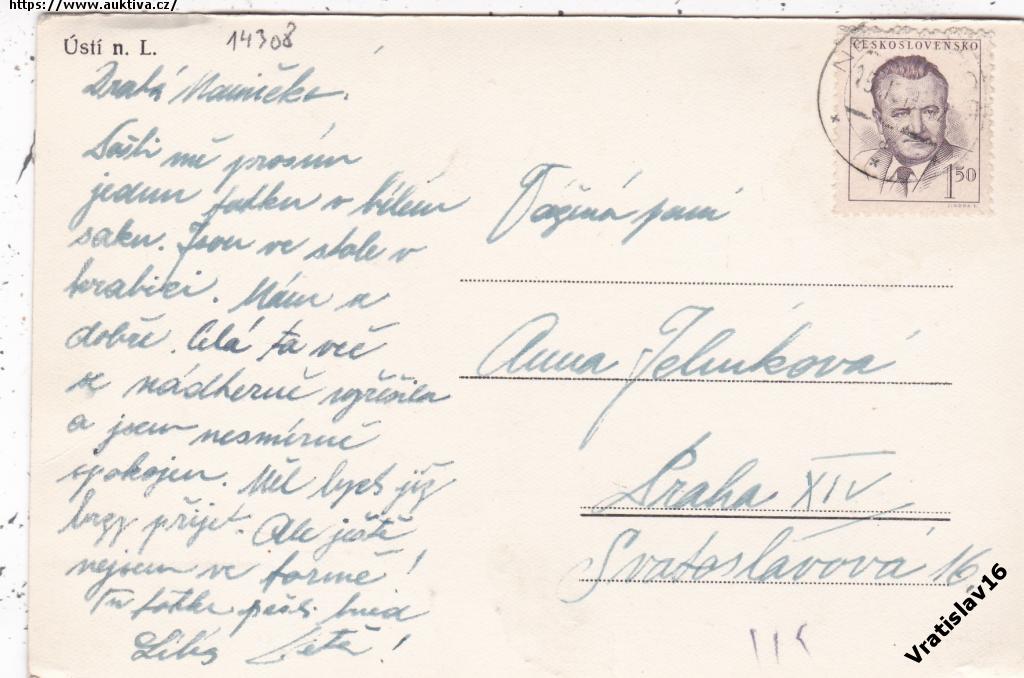 https://www.auktiva.cz/
Ústí n. L.
14308
Drahá Maničko.
Pošli mě prosím
jednu fotku v bílém
saku. Jsou ve stole v
krabici. Mám se
dobře. Celá ta věc
se nádherně vyřešila
a jsem nesmírně
spokojen. Měl bych již
brzy přijet. Ale ještě
nejsem ve formě!
Tu fotku pošli hned
Líbá
ČESKOSLOVENSKO
1.50
Vážená paní
Anna Jelínková
Praha XIV
Svatoslavova 16.
112
Vratislav16